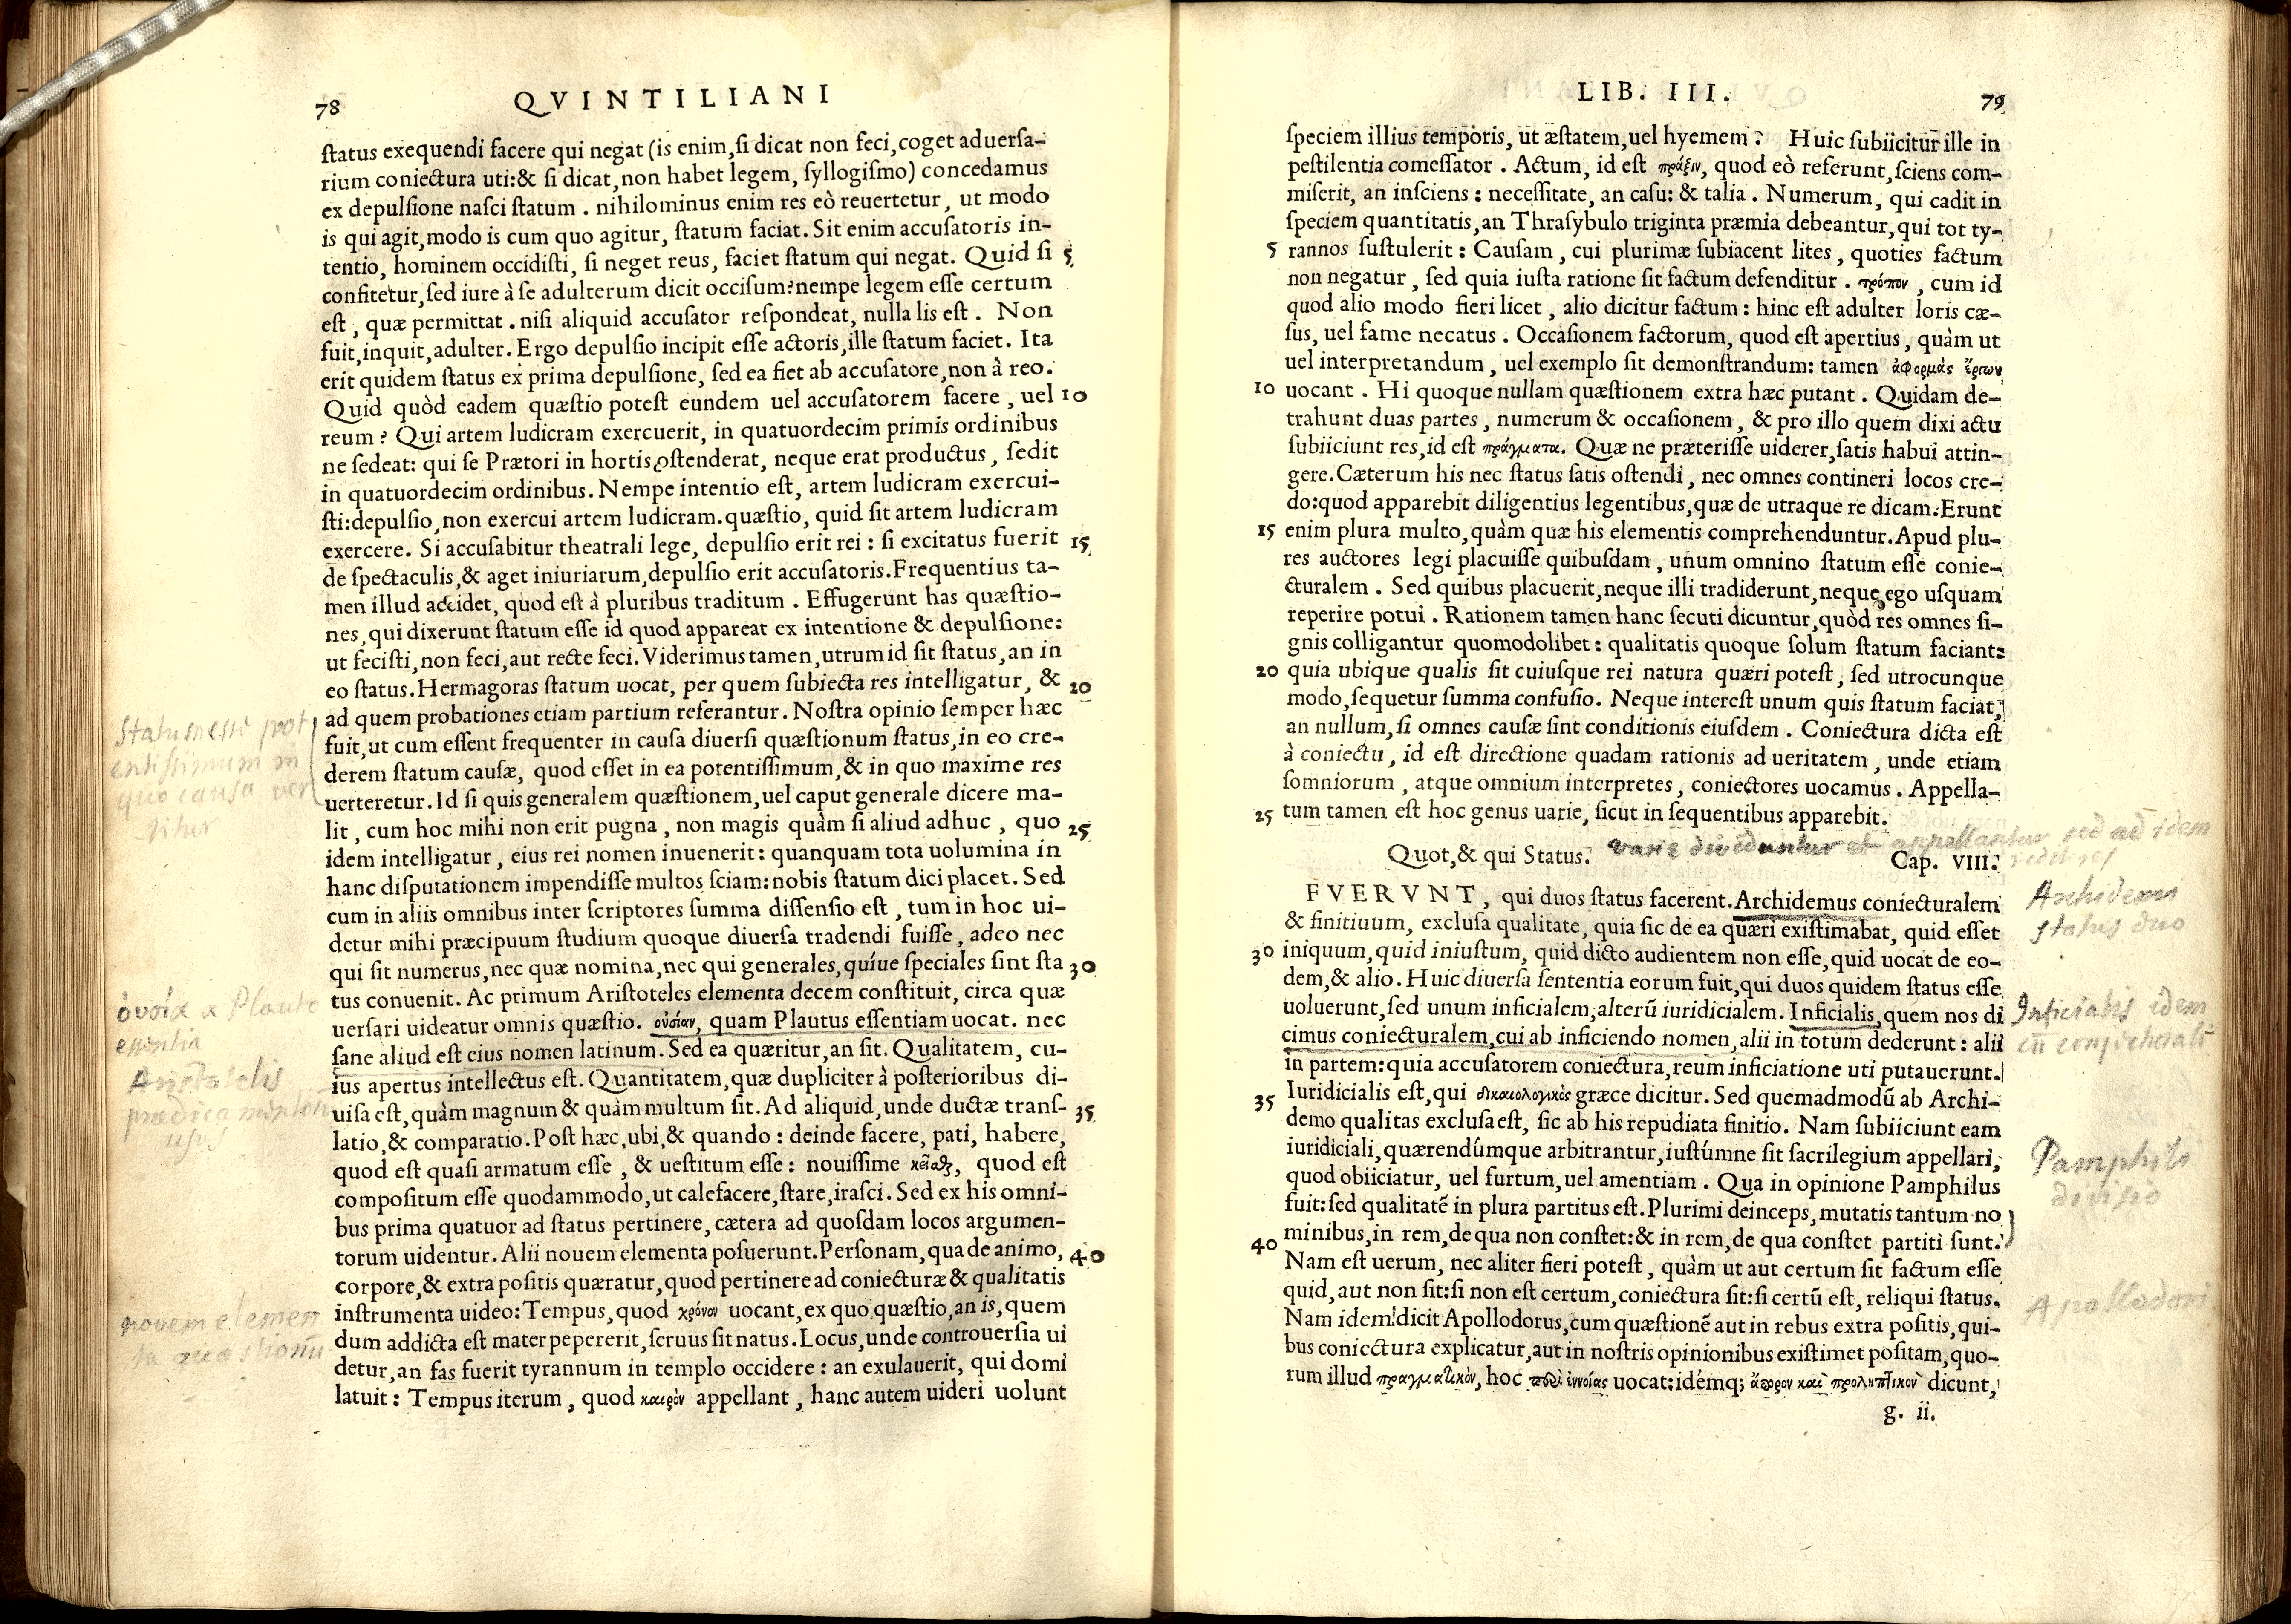 78 QVINTILIANI
ſtatus exequendi facere qui negat (is enim, ſi dicat non feci, coget aduerſa-
rium coniectura uti:& ſi dicat, non habet legem, ſyllogiſmo) concedamus
ex depulſione naſci ſtatum . nihilominus enim res eò reuertetur, ut modo
is qui agit, modo is cum quo agitur, ſtatum faciat. Sit enim accuſatoris in-
tentio, hominem occidiſti, ſi neget reus, faciet ſtatum qui negat. Quid ſi 5
confitetur, ſed iure à ſe adulterum dicit occiſum? nempe legem eſſe certum
eſt, quæ permittat . niſi aliquid accuſator reſpondeat, nulla lis eſt . Non
fuit, inquit, adulter. Ergo depulſio incipit eſſe actoris, ille ſtatum faciet. Ita
erit quidem ſtatus ex prima depulſione, ſed ea fiet ab accuſatore, non à reo.
Quid quòd eadem quæſtio poteſt eundem uel accuſatorem facere, uel 10
reum? Qui artem ludicram exercuerit, in quatuordecim primis ordinibus
ne ſedeat: qui ſe Prætori in hortis oſtenderat, neque erat productus, ſedit
in quatuordecim ordinibus. Nempe intentio eſt, artem ludicram exercui-
ſti: depulſio, non exercui artem ludicram. quæſtio, quid ſit artem ludicram
exercere. Si accuſabitur theatrali lege, depulſio erit rei : ſi excitatus fuerit 15
de ſpectaculis, & aget iniuriarum, depulſio erit accuſatoris. Frequentius ta-
men illud accidet, quod eſt à pluribus traditum . Effugerunt has quæſtio-
nes, qui dixerunt ſtatum eſſe id quod appareat ex intentione & depulſione:
ut feciſti, non feci, aut recte feci. Viderimus tamen, utrum id ſit ſtatus, an in
eo ſtatus. Hermagoras ſtatum uocat, per quem ſubiecta res intelligatur, & 20
ad quem probationes etiam partium referantur. Noſtra opinio ſemper hæc
fuit, ut cum eſſent frequenter in cauſa diuerſi quæſtionum ſtatus, in eo cre-
derem ſtatum cauſæ, quod eſſet in ea potentiſſimum, & in quo maxime res
uerteretur. Id ſi quis generalem quæſtionem, uel caput generale dicere ma-
lit, cum hoc mihi non erit pugna, non magis quàm ſi aliud adhuc, quo 25
idem intelligatur, eius rei nomen inuenerit: quanquam tota uolumina in
hanc diſputationem impendiſſe multos ſciam: nobis ſtatum dici placet. Sed
cum in aliis omnibus inter ſcriptores ſumma diſſenſio eſt, tum in hoc ui-
detur mihi præcipuum ſtudium quoque diuerſa tradendi fuiſſe, adeo nec
qui ſit numerus, nec quæ nomina, nec qui generales, quíue ſpeciales ſint ſta 30
tus conuenit. Ac primum Ariſtoteles elementa decem conſtituit, circa quæ
uerſari uideatur omnis quæſtio. οὐσίαν, quam Plautus eſſentiam uocat. nec
ſane aliud eſt eius nomen latinum. Sed ea quæritur, an ſit. Qualitatem, cu-
ius apertus intellectus eſt. Quantitatem, quæ dupliciter à poſterioribus di-
uiſa eſt, quàm magnum & quàm multum ſit. Ad aliquid, unde ductæ tranſ- 35
latio, & comparatio. Poſt hæc, ubi, & quando : deinde facere, pati, habere,
quod eſt quaſi armatum eſſe, & ueſtitum eſſe: nouiſſime κεῖσθαι, quod eſt
compoſitum eſſe quodammodo, ut calefacere, ſtare, iraſci. Sed ex his omni-
bus prima quatuor ad ſtatus pertinere, cætera ad quoſdam locos argumen-
torum uidentur. Alii nouem elementa poſuerunt. Perſonam, qua de animo, 40
corpore, & extra poſitis quæratur, quod pertinere ad coniecturæ & qualitatis
inſtrumenta uideo: Tempus, quod χρόνον uocant, ex quo quæſtio, an is, quem
dum addicta eſt mater pepererit, ſeruus ſit natus. Locus, unde controuerſia ui
detur, an fas fuerit tyrannum in templo occidere : an exulauerit, qui domi
latuit : Tempus iterum, quod καιρὸν appellant, hanc autem uideri uolunt
Statum esse pot
entissimum in
quo causa ver
titur
ὀυσία a Plauto
essentia
Aristotelis
prædicamentorum
usus
novem elemen
ta quæstionũ
LIB. III. 79
ſpeciem illius temporis, ut æſtatem, uel hyemem? Huic ſubiicitur ille in
peſtilentia comeſſator . Actum, id eſt πράξιν, quod eò referunt, ſciens com-
miſerit, an inſciens : neceſſitate, an caſu: & talia . Numerum, qui cadit in
ſpeciem quantitatis, an Thraſybulo triginta præmia debeantur, qui tot ty-
5 rannos ſuſtulerit : Cauſam, cui plurimæ ſubiacent lites, quoties factum
non negatur, ſed quia iuſta ratione ſit factum defenditur . τρόπον, cum id
quod alio modo fieri licet, alio dicitur factum : hinc eſt adulter loris cæ-
ſus, uel fame necatus . Occaſionem factorum, quod eſt apertius, quàm ut
uel interpretandum, uel exemplo ſit demonſtrandum: tamen ἀφορμὰς ἔργων
10 uocant . Hi quoque nullam quæſtionem extra hæc putant . Quidam de-
trahunt duas partes, numerum & occaſionem, & pro illo quem dixi actu
ſubiiciunt res, id eſt πράγματα. Quæ ne præteriſſe uiderer, ſatis habui attin-
gere. Cæterum his nec ſtatus ſatis oſtendi, nec omnes contineri locos cre-
do: quod apparebit diligentius legentibus, quæ de utraque re dicam. Erunt
15 enim plura multo, quàm quæ his elementis comprehenduntur. Apud plu-
res auctores legi placuiſſe quibuſdam, unum omnino ſtatum eſſe conie-
cturalem . Sed quibus placuerit, neque illi tradiderunt, neque ego uſquam
reperire potui . Rationem tamen hanc ſecuti dicuntur, quòd res omnes ſi-
gnis colligantur quomodolibet : qualitatis quoque ſolum ſtatum faciant:
20 quia ubique qualis ſit cuiuſque rei natura quæri poteſt, ſed utrocunque
modo, ſequetur ſumma confuſio. Neque intereſt unum quis ſtatum faciat,
an nullum, ſi omnes cauſæ ſint conditionis eiuſdem . Coniectura dicta eſt
à coniectu, id eſt directione quadam rationis ad ueritatem, unde etiam
ſomniorum, atque omnium interpretes, coniectores uocamus . Appella-
25 tum tamen eſt hoc genus uarie, ſicut in ſequentibus apparebit.
varie dividuntur et appellantur sed ad idem
redit res
Quot, & qui Status. Cap. VIII.
FVERVNT, qui duos ſtatus facerent. Archidemus coniecturalem
& finitiuum, excluſa qualitate, quia ſic de ea quæri exiſtimabat, quid eſſet
30 iniquum, quid iniuſtum, quid dicto audientem non eſſe, quid uocat de eo-
dem, & alio. Huic diuerſa ſententia eorum fuit, qui duos quidem ſtatus eſſe
uoluerunt, ſed unum inficialem, alterũ iuridicialem. Inficialis, quem nos di
cimus coniecturalem, cui ab inficiendo nomen, alii in totum dederunt : alii
in partem: quia accuſatorem coniectura, reum inficiatione uti putauerunt.
35 Iuridicialis eſt, qui δικαιολογικὸς græce dicitur. Sed quemadmodũ ab Archi-
demo qualitas excluſa eſt, ſic ab his repudiata finitio. Nam ſubiiciunt eam
iuridiciali, quærendúmque arbitrantur, iuſtúmne ſit ſacrilegium appellari,
quod obiiciatur, uel furtum, uel amentiam . Qua in opinione Pamphilus
fuit: ſed qualitatẽ in plura partitus eſt. Plurimi deinceps, mutatis tantum no
40 minibus, in rem, de qua non conſtet: & in rem, de qua conſtet partiti ſunt.
Nam eſt uerum, nec aliter fieri poteſt, quàm ut aut certum ſit factum eſſe
quid, aut non ſit: ſi non eſt certum, coniectura ſit: ſi certũ eſt, reliqui ſtatus.
Nam idem dicit Apollodorus, cum quæſtionẽ aut in rebus extra poſitis, qui-
bus coniectura explicatur, aut in noſtris opinionibus exiſtimet poſitam, quo-
rum illud πραγματικὸν, hoc περὶ ἐννοίας uocat: idémq; ἄπορον καὶ προληπτικὸν dicunt,
g. ii.
Archidemi
status duo
Inficialis idem
Pamphili
divisio
Apollodori